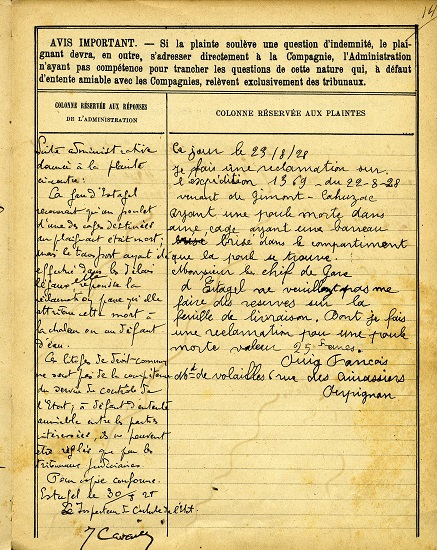 14
AVIS IMPORTANT. — Si la plainte soulève une question d'indemnité, le plai-
gnant devra, en outre, s'adresser directement à la Compagnie, l'Administration
n'ayant pas compétence pour trancher les questions de cette nature qui, à défaut
d'entente amiable avec les Compagnies, relèvent exclusivement des tribunaux.
COLONNE RÉSERVÉE AUX RÉPONSES
DE L'ADMINISTRATION
Suite administrative
donnée à la plainte
ci-contre :
La gare d'Estagel
reconnait qu'un poulet
d'une des cages destinées
au plaignant était mort ;
mais le transport ayant été
effectué dans les délais
légaux elle repousse la
réclamation parce qu'elle
attribue cette mort à
la chaleur ou au défaut
d'eau.
Ce litige de droit commun
ne sont pas de la compétence
du service de contrôle de
l'Etat, à défaut d'entente
amiable entre les parties
intéressées, ils ne peuvent
être réglés que par les
tribunaux judiciaires.
Pour copie conforme.
Estagel le 30 28
L'Inspecteur du Contrôle de l'Etat.
COLONNE RÉSERVÉE AUX PLAINTES
Ce jour le 23/8/28
Je fais une reclamation sur
l'expédition 1369 du 22-8-28
venant de Gimont-Cahuzac
ayant une poule morte dans
une cage ayant une barreau
brise dans le compartiment
que la poule se trouve.
Monsieur le chef de Gare
d Estagel ne veuillant pas me
faire des reserves sur la
feuille de livraison. Dont je fais
une reclamation pour une poule
morte valeur 25 francs.
Puig Francois
de volailles 6 rue des
Perpignan